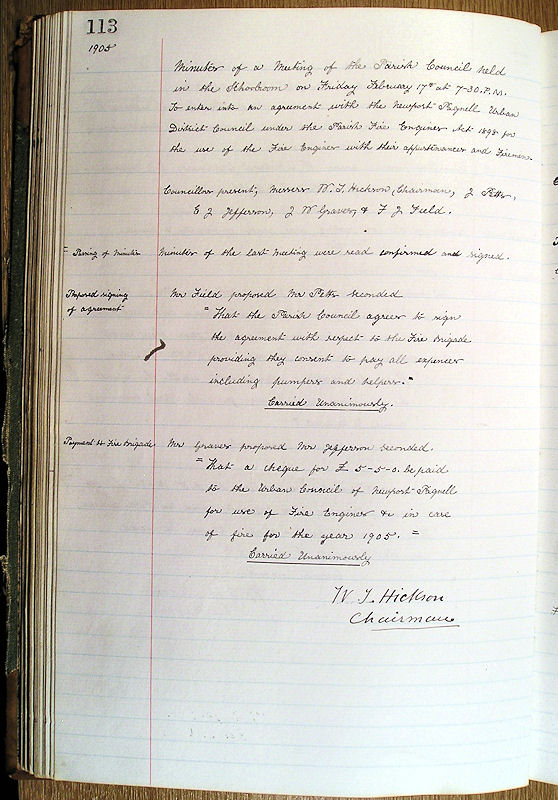 113
1905
Minutes of a Meeting of the Parish Council held
in the Schoolroom on Friday February 17th at 7-30. P.M.
To enter into an agreement with the Newport Pagnell Urban
District Council under the Parish Fire Engines Act 1898 for
the use of the Fire Engines with their appurtenances and Firemen.
Councillors present, Messrs W. T. Hickson, Chairman, J Petts,
E J Jefferson, J W Graves, & F J Field.
= Passing of Minutes
Minutes of the last Meeting were read confirmed and signed.
Proposed signing
of agreement
Mr Field proposed Mr Petts seconded
"That the Parish Council agree to sign
the agreement with respect to the Fire Brigade
providing they consent to pay all expenses
including pumpers and helpers."
Carried Unanimously.
Payment to Fire Brigade
Mr Graves proposed Mr Jefferson seconded.
"That a cheque for £ 5-5-0. be paid
to the Urban Council of Newport Pagnell
for use of Fire Engines &c in case
of fire for the year 1905."
Carried Unanimously
W T Hickson
Chairman